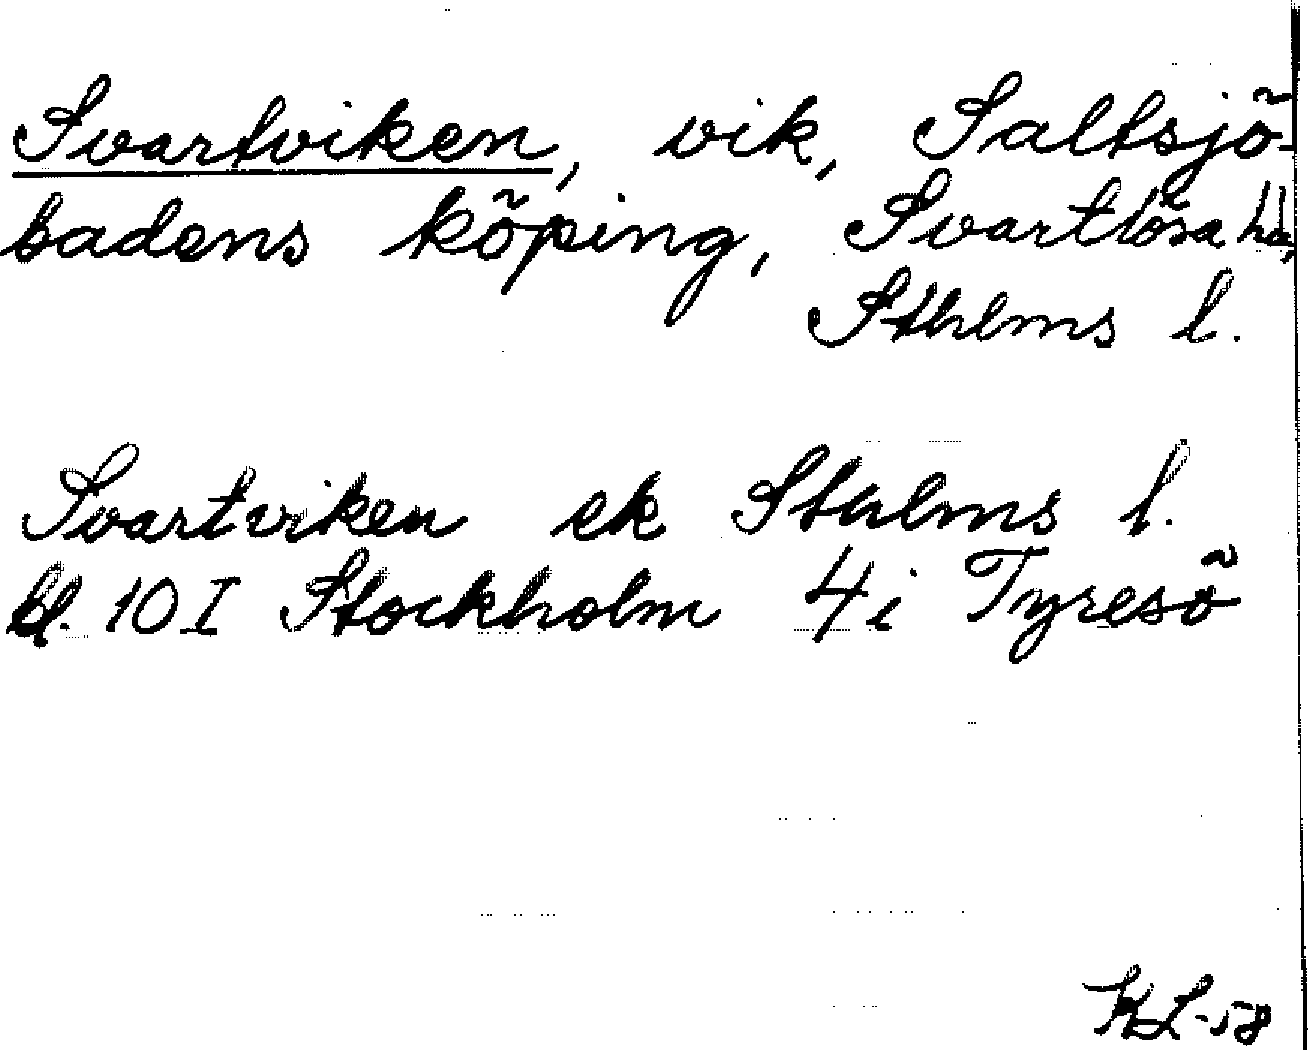 Svartviken, vik, Saltsjö-
badens köping, Svartlösa hd,
Sthlms l.
Svartviken ek Sthlms l.
bl. 10 I Stockholm 4 i Tyresö
KL-58